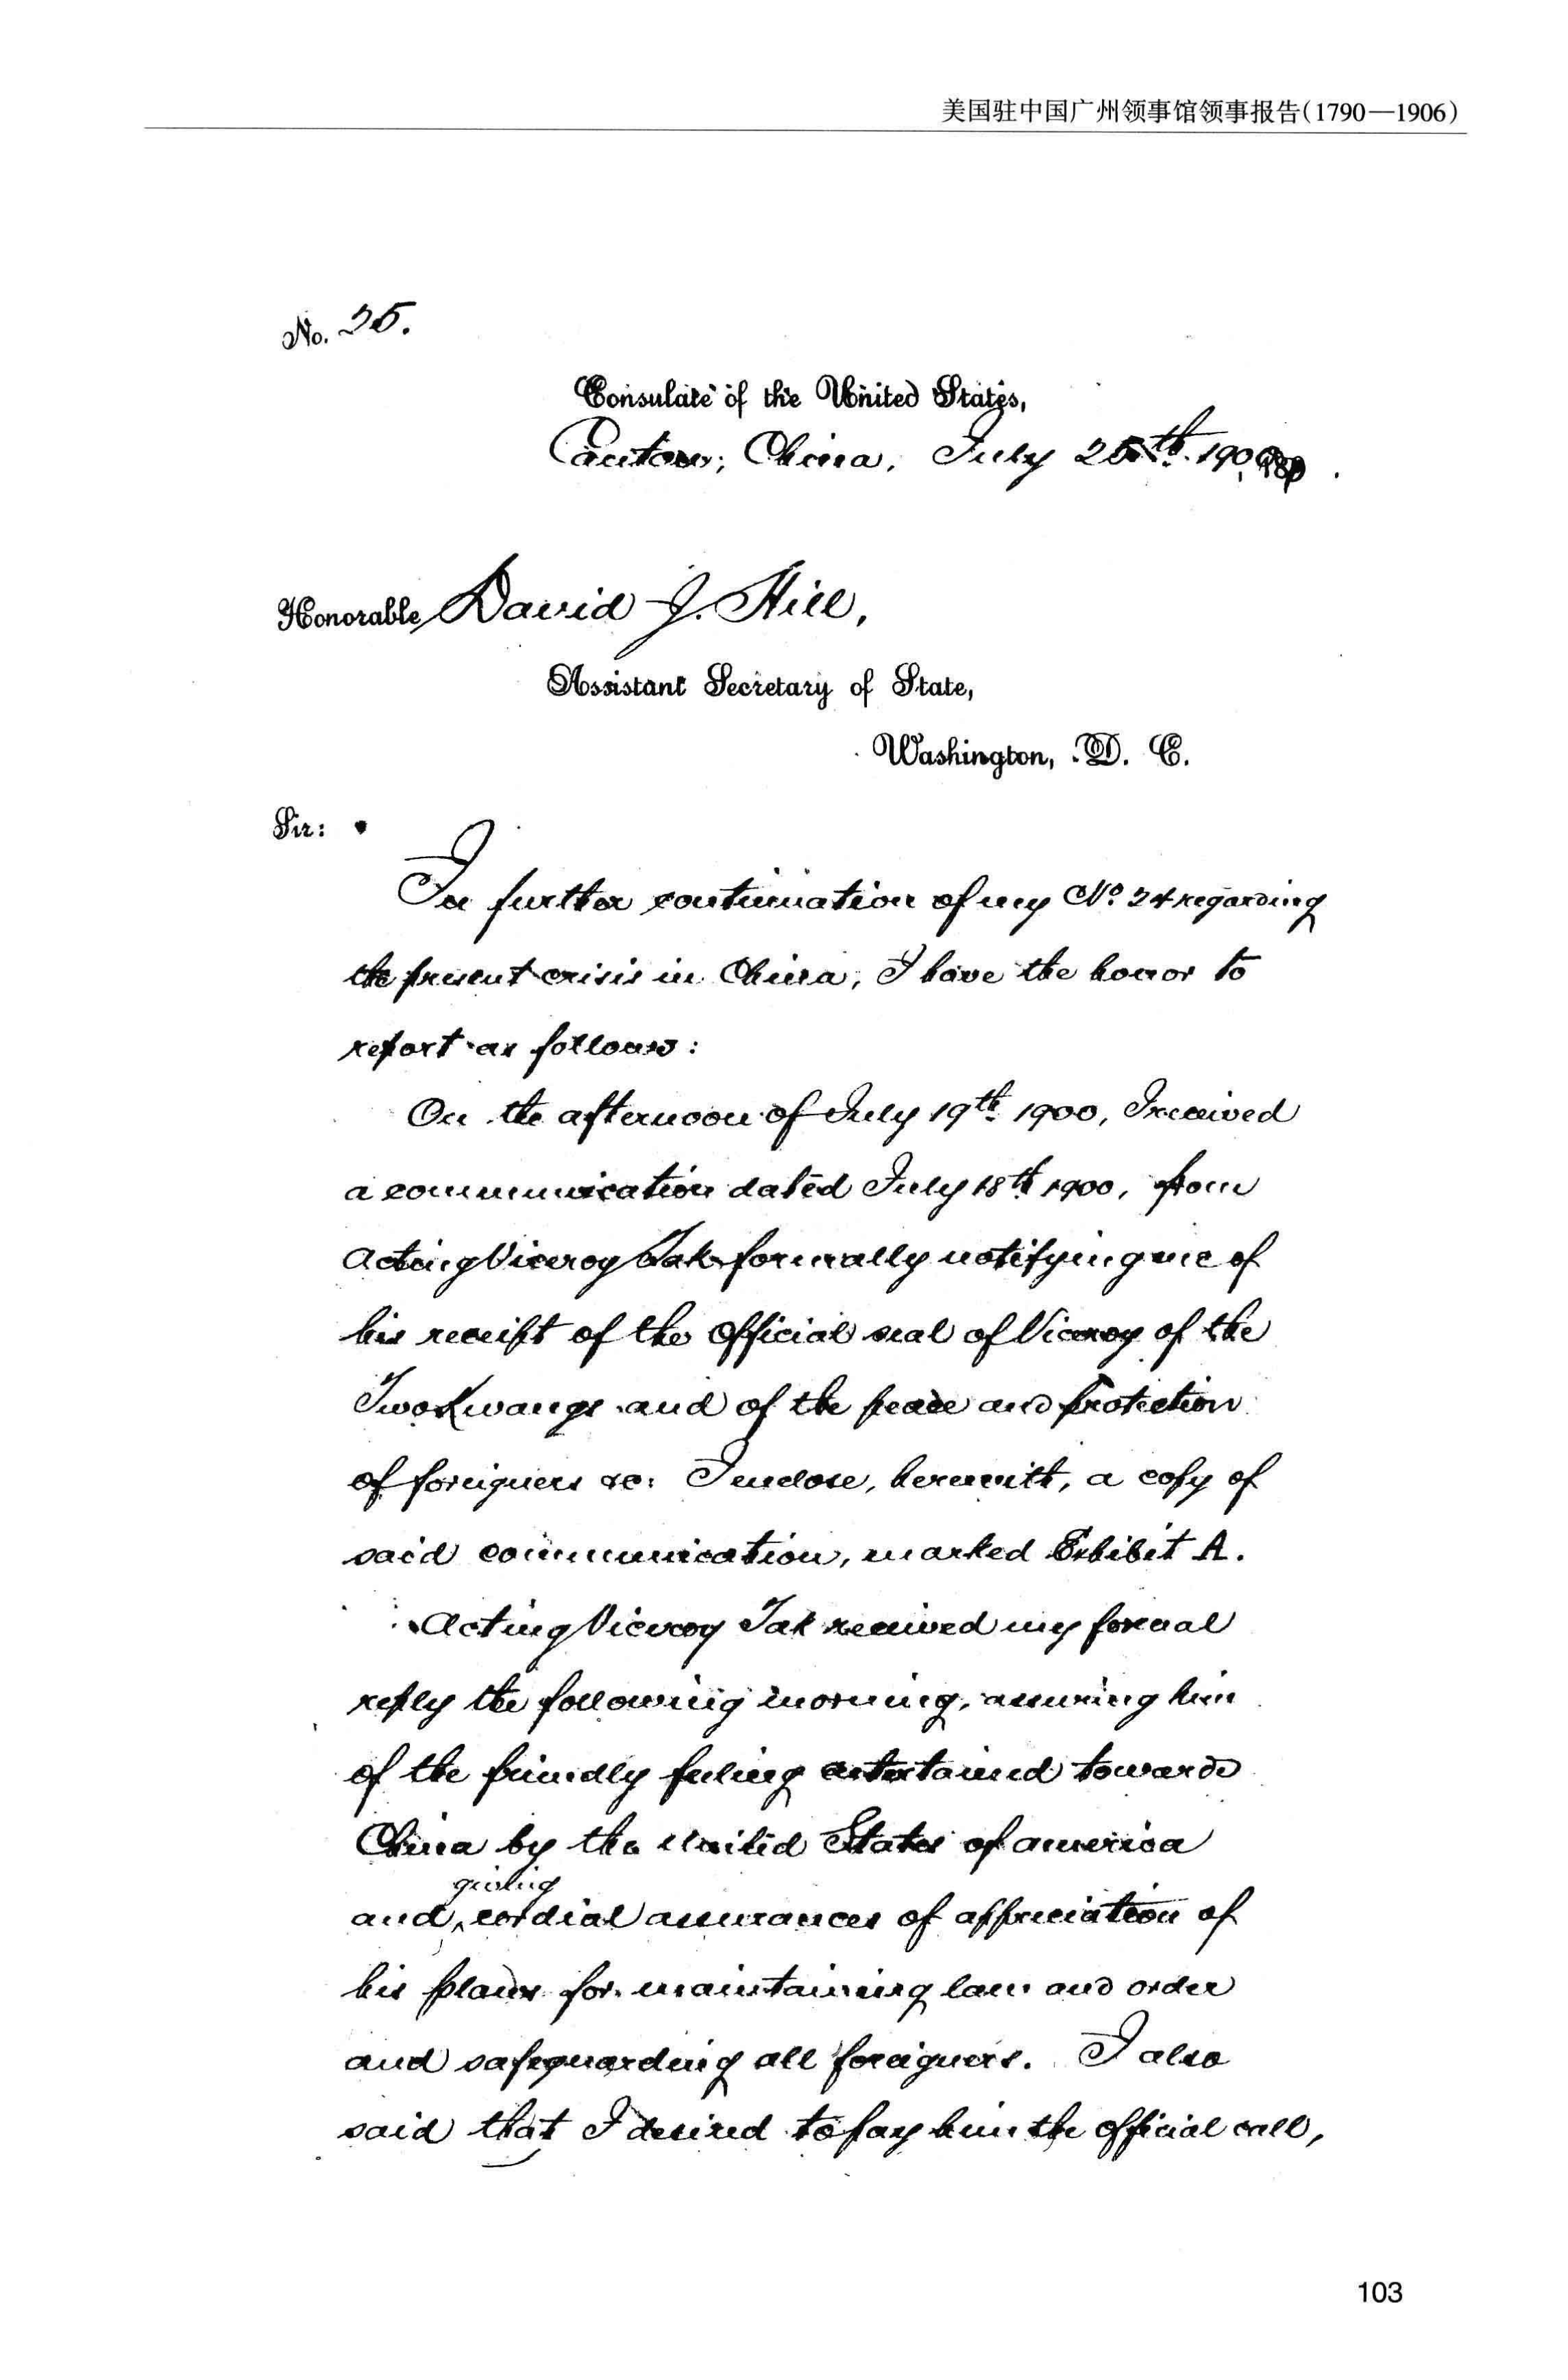 美国驻中国广州领事馆领事报告(1790—1906)
No. 25.
Consulate of the United States,
Canton, China, July 1900.
Honorable David J. Hill,
Assistant Secretary of State,
Washington, D. C.
Sir:
In further continuation of my No. 24 regarding
the present crisis in China, I have the honor to
report as follows:
On the afternoon of July 19th. 1900, I received
a communication dated July 18th 1900, from
Acting Viceroy Tak formally notifying me of
his receipt of the official seal of Viceroy of the
Two Kwangs and of the peace and protection
of foreigners &c. I enclose, herewith, a copy of
said communication, marked Exhibit A.
Acting Viceroy Tak received my formal
reply the following morning, assuring him
of the friendly feeling entertained towards
China by the United States of America
giving
and cordial assurances of appreciation of
his plans for maintaining law and order
and safeguarding all foreigners. I also
said that I desired to pay him the official call,
103